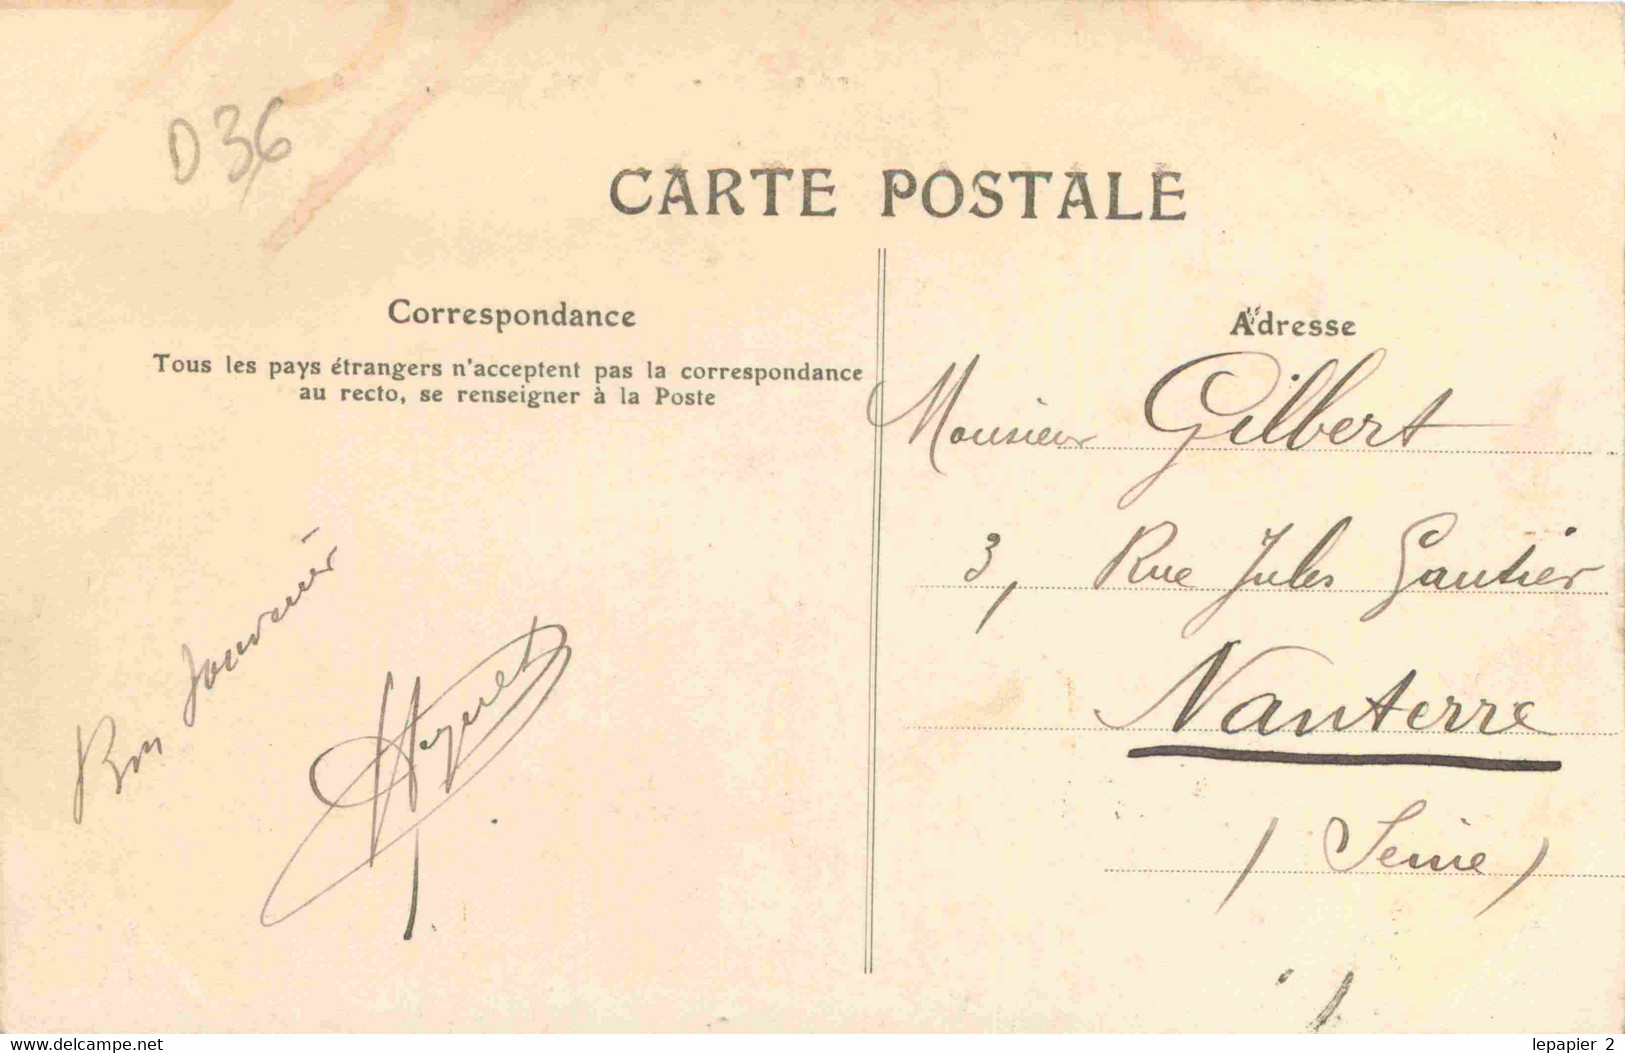 D 36
CARTE POSTALE
Correspondance
Tous les pays étrangers n'acceptent pas la correspondance
au recto, se renseigner à la Poste
Bon souvenir
Adresse
Monsieur Gilbert
3, Rue Jules Gautier
Nanterre
(Seine)
www.delcampe.net
lepapier_2